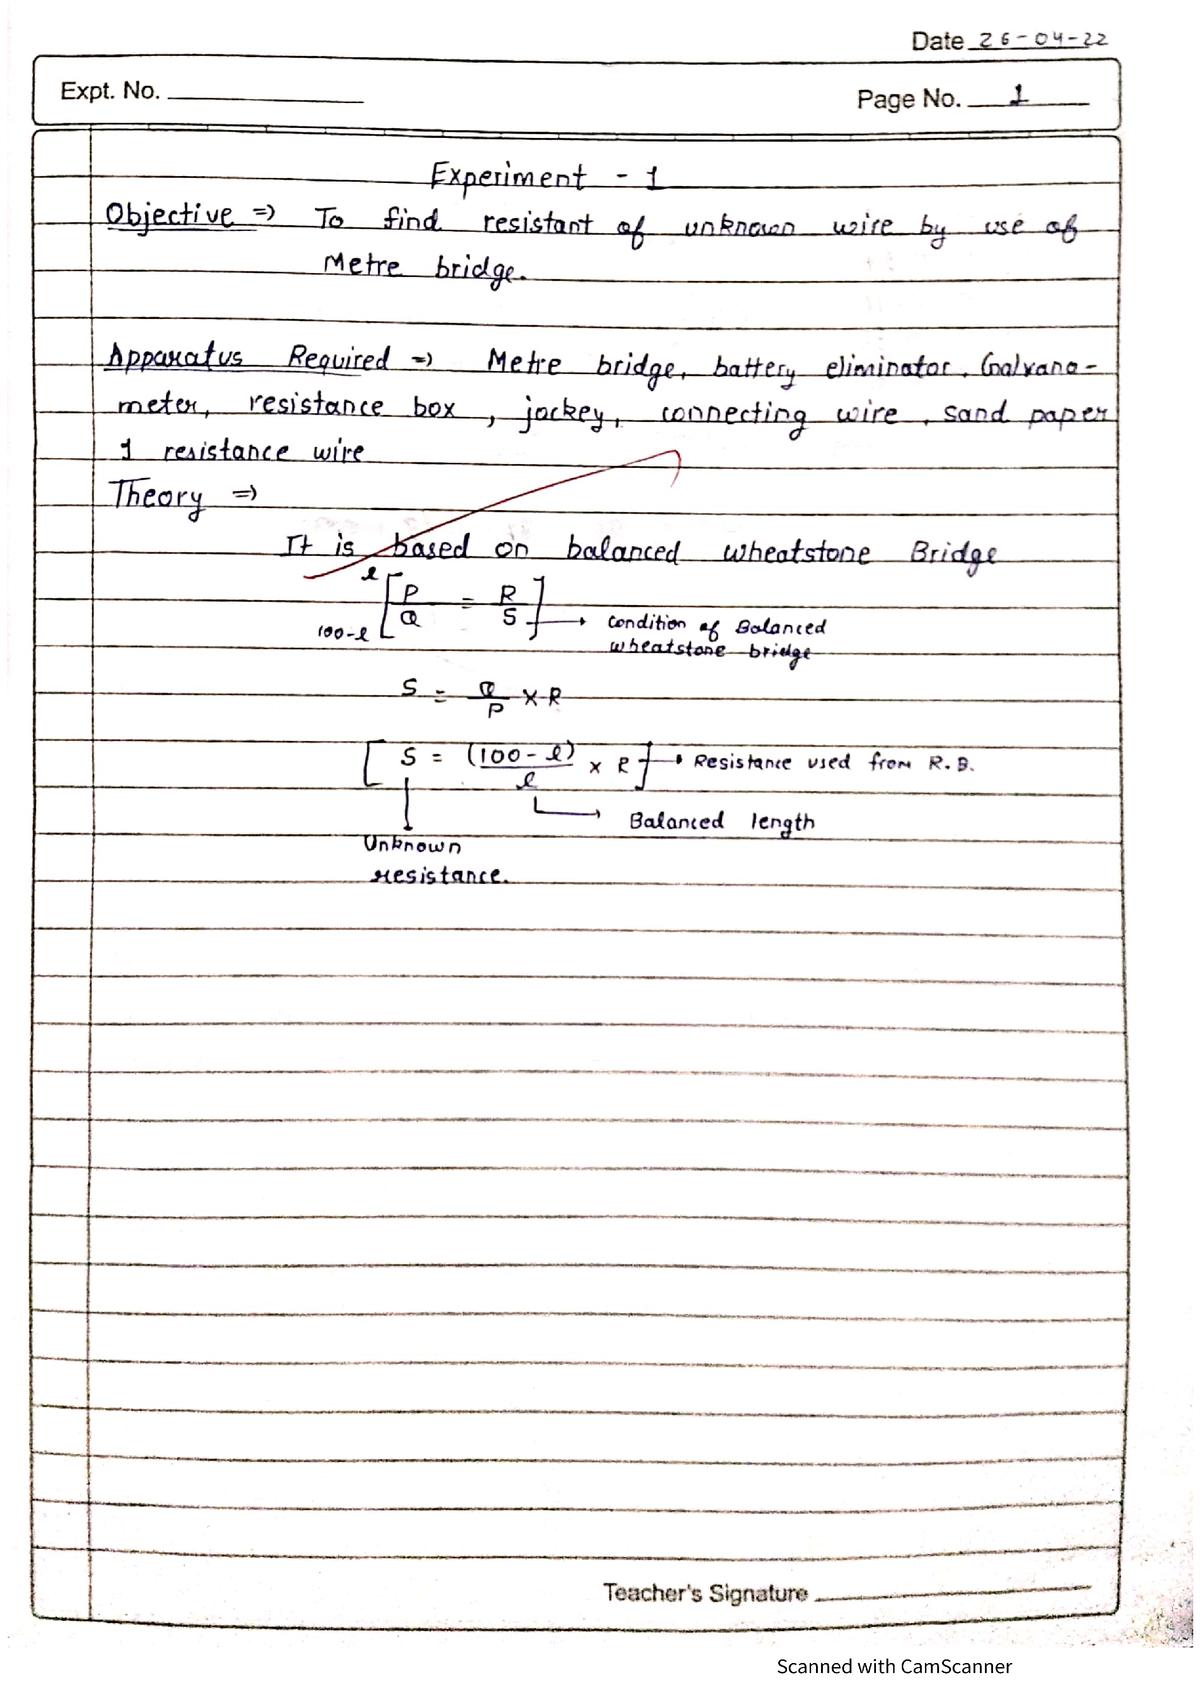 Date 26-04-22
Expt. No.
Page No. 1
Experiment - 1
Objective => To find resistant of unknown wire by use of
Metre bridge.
Apparatus Required => Metre bridge, battery eliminator, Galvano-
meter, resistance box, jockey, connecting wire, sand paper
1 resistance wire
Theory =>
It is based on balanced wheatstone Bridge
l [ P/Q = R/S ] → Condition of Balanced
100-l wheatstone bridge
S = Q/P × R
[ S = (100 - l)/l × R ] → Resistance used from R.B.
Balanced length
Unknown
resistance.
Teacher's Signature
Scanned with CamScanner